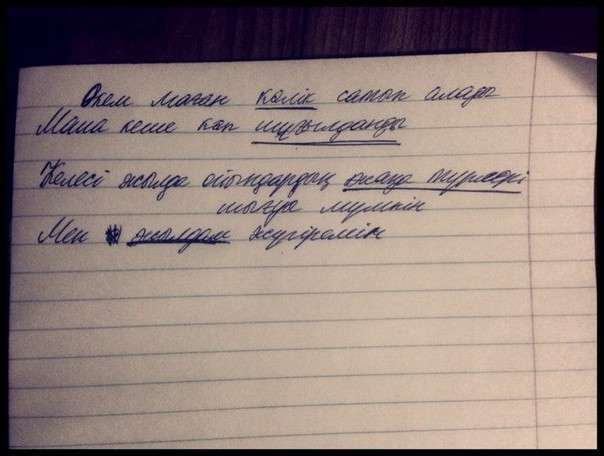 Әкем маған көлік сатып алады
Мама кеше көп шұғылданды
Келесі жылда ойындардың жаңа түрлері
шығуы мүмкін
Мен жылдам жүгіремін